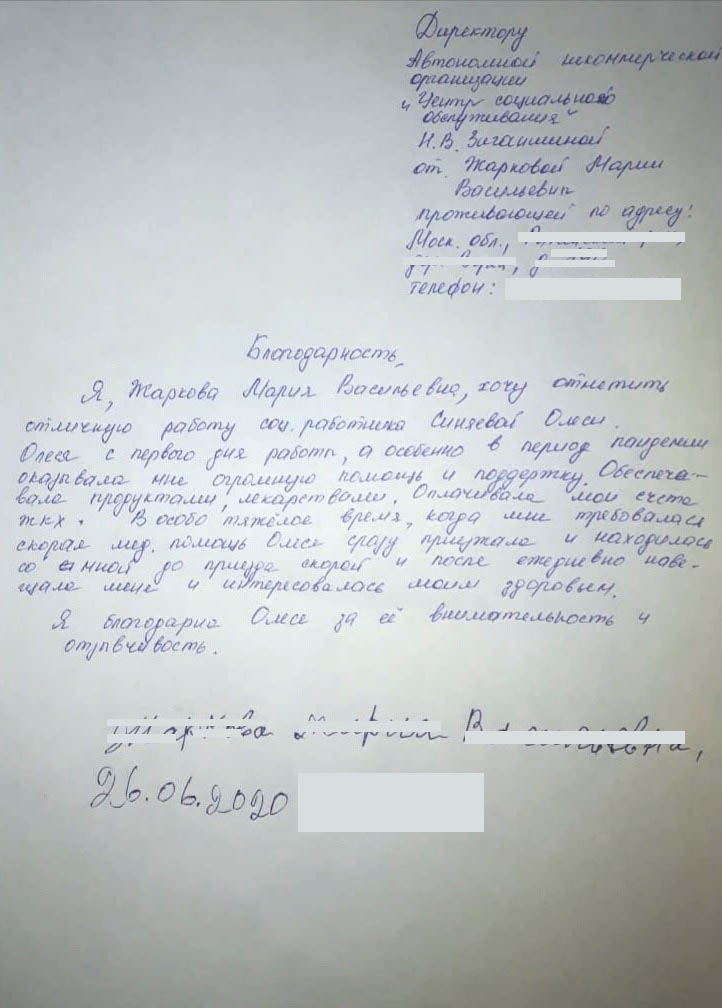 Директору
Автономной некоммерческой
организации
"Центр социального
обслуживания"
Н.В. Зиганшиной
от Жарковой Марии
Васильевны
проживающей по адресу:
Моск. обл.,
телефон:
Благодарность,
Я, Жаркова Мария Васильевна, хочу отметить
отличную работу соц. работника Синяевой Олеси.
Олеся с первого дня работы, а особенно в период пандемии
оказывала мне огромную помощь и поддержку. Обеспечи-
вала продуктами, лекарствами. Оплачивала мои счета
ЖКХ. В особо тяжёлое время, когда мне требовалась
скорая мед. помощь Олеся сразу приезжала и находилась
со мной до приезда скорой и после ежедневно наве-
щала меня и интересовалась моим здоровьем.
Я благодарна Олесе за её внимательность и
отзывчивость.
26.06.2020